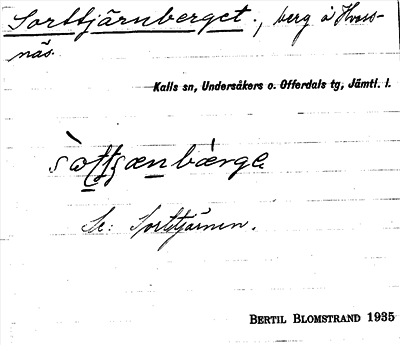 Sorttjärnberget., berg å Hvars-
näs.
Kalls sn, Undersåkers o. Offerdals tg, Jämtl. l.
Se: Sorttjärnen.
BERTIL BLOMSTRAND 1935